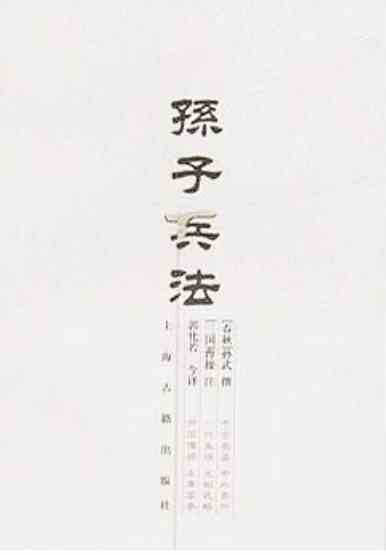 孫子兵法
[春秋]孫武 撰
[三国]曹操 注
郭化若 今译
上海古籍出版社